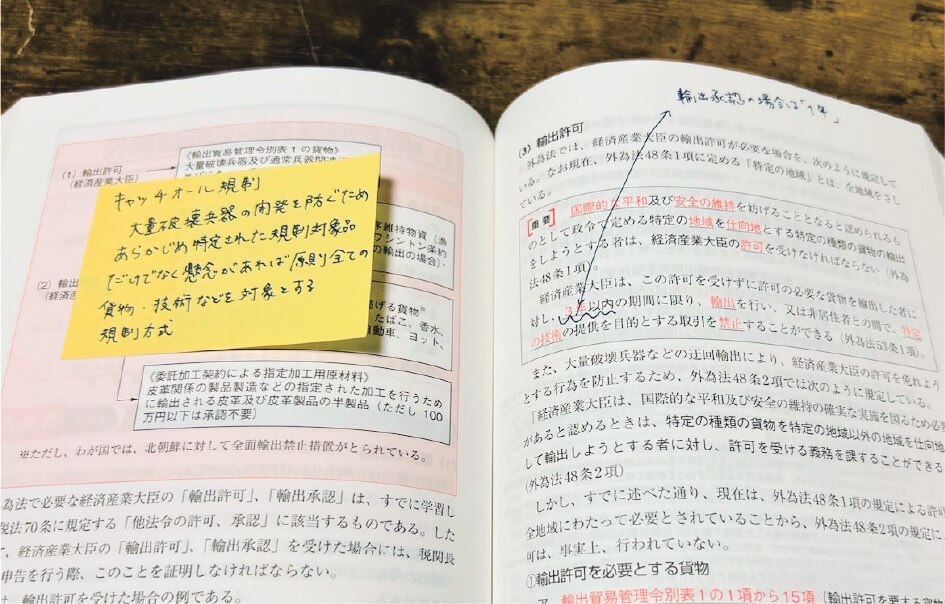 (1) 輸出許可
(経済産業大臣)
《輸出貿易管理令別表1の貨物》
大量破壊兵器及び通常兵器関連
キャッチオール規制
大量破壊兵器の開発を防ぐため
あらかじめ特定された規制対象品
だけでなく懸念があれば原則全ての
貨物・技術などを対象とする
規制方式
(2) 輸出
(経済産
維持物資(漁
ワシントン条約
の輸出の場合)・
げる貨物※
たばこ、香水、
自動車、ヨット、
《委託加工契約による指定加工用原材料》
皮革関係の製品製造などの指定された加工を行うため
に輸出される皮革及び皮革製品の半製品(ただし100
万円以下は承認不要)
※ただし、わが国では、北朝鮮に対して全面輸出禁止措置がとられている。
為法で必要な経済産業大臣の「輸出許可」、「輸出承認」は、すでに学習し
税法70条に規定する「他法令の許可、承認」に該当するものである。した
、経済産業大臣の「輸出許可」、「輸出承認」を受けた場合には、税関長
申告を行う際、このことを証明しなければならない。
は、輸出許可を受けた場合の例である。
輸出承認の場合は1年
(3) 輸出許可
外為法では、経済産業大臣の輸出許可が必要な場合を、次のように規定して
いる。なお現在、外為法48条1項に定める「特定の地域」とは、全地域をさし
ている。
重要 国際的な平和及び安全の維持を妨げることとなると認められるも
のとして政令で定める特定の地域を仕向地とする特定の種類の貨物の輸出
をしようとする者は、経済産業大臣の許可を受けなければならない(外為
法48条1項)。
経済産業大臣は、この許可を受けずに許可の必要な貨物を輸出した者に
対し、3年以内の期間に限り、輸出を行い、又は非居住者との間で、特定
の技術の提供を目的とする取引を禁止することができる(外為法53条1項)。
また、大量破壊兵器などの迂回輸出により、経済産業大臣の許可を免れよう
とする行為を防止するため、外為法48条2項では次のように規定している。
「経済産業大臣は、国際的な平和及び安全の維持の確実な実施を図るため必要
があると認めるときは、特定の種類の貨物を特定の地域以外の地域を仕向地
して輸出しようとする者に対し、許可を受ける義務を課することができる
(外為法48条2項)
しかし、すでに述べた通り、現在は、外為法48条1項の規定による許可
全地域にわたって必要とされていることから、外為法48条2項の規定に
可は、事実上、行われていない。
①輸出許可を必要とする貨物
ア 輸出貿易管理令別表1の1項から15項(輸出許可を要する貨物